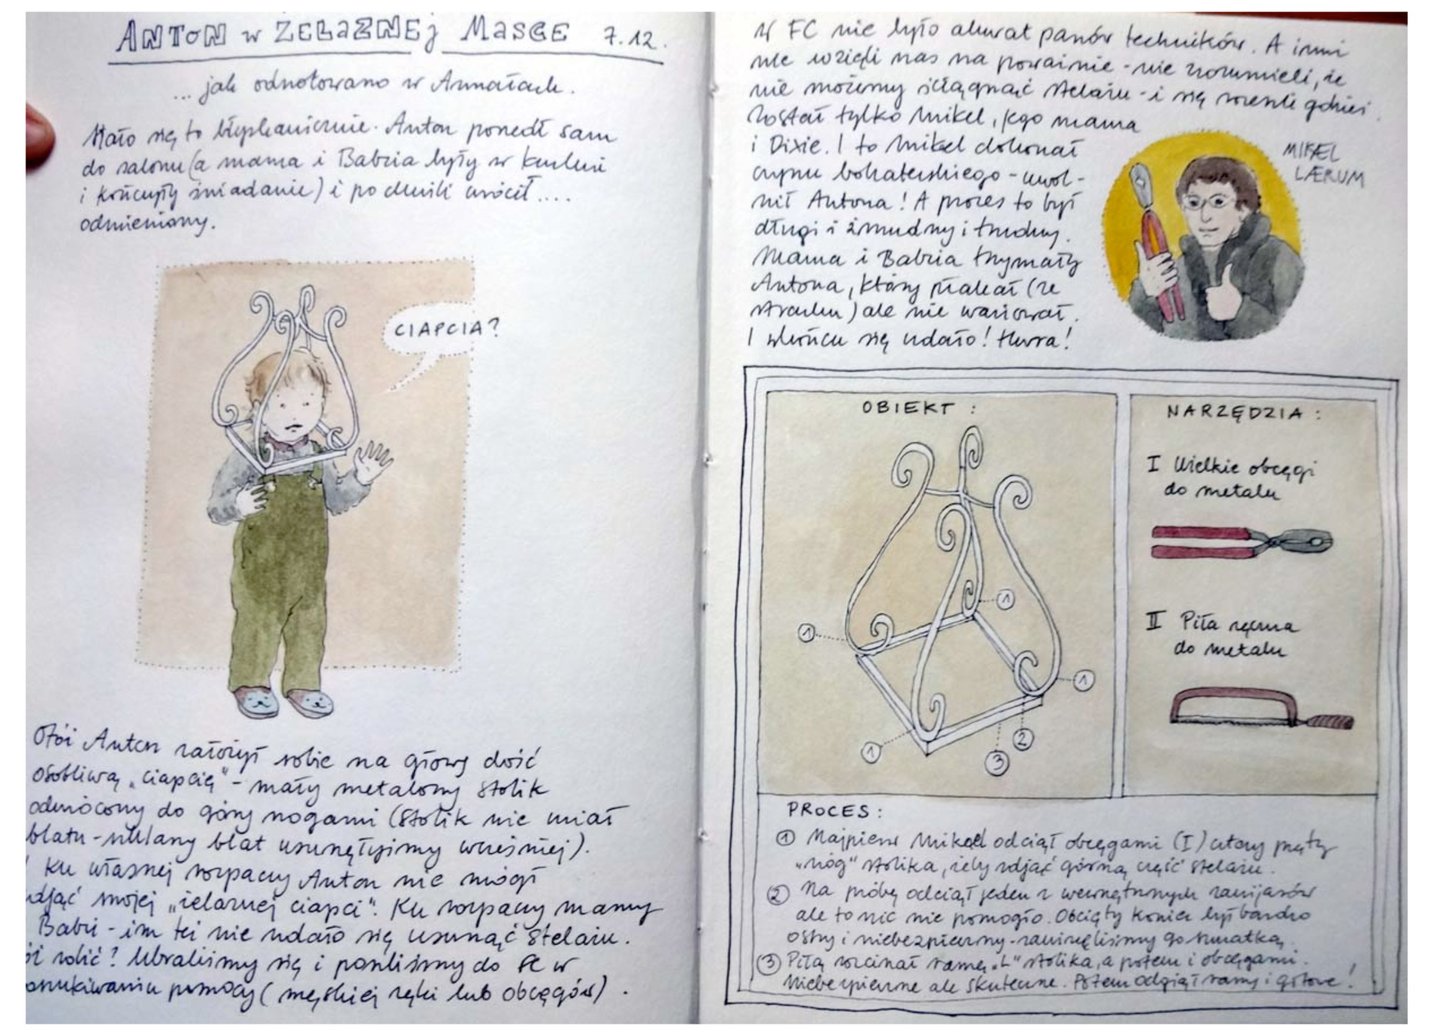 ANTON w ŻELAZNEJ MASCE 7.12.
...jak odnotowano w Annałach.
Stało się to błyskawicznie. Anton poszedł sam
do salonu (a mama i Babcia były w kuchni
i kończyły śniadanie) i po chwili wrócił....
odmieniony.
CIAPCIA?
Otóż Anton założył sobie na głowę dość
osobliwą „ciapcię" - mały metalowy stolik
odwrócony do góry nogami (stolik nie miał
blatu - szklany blat usunęłyśmy wcześniej).
Ku własnej rozpaczy Anton nie mógł
zdjąć swojej „żelaznej ciapci". Ku rozpaczy mamy
Babci - im też nie udało się usunąć stelażu.
robić? Ubraliśmy się i poszliśmy do FC w
poszukiwaniu pomocy (męskiej ręki lub obcęgów).
W FC nie było akurat panów techników. A inni
nie wzięli nas na poważnie - nie zrozumieli, że
nie możemy ściągnąć stelażu - i się rozeszli gdzieś.
Został tylko Mikel, jego mama
i Dixie. I to Mikel dokonał
czynu bohaterskiego - uwol-
nił Antona! A proces to był
długi i żmudny i trudny.
Mama i Babcia trzymały
Antona, który płakał (ze
strachu) ale nie wariował.
I wkońcu się udało! Hurra!
MIKÆL
LÆRUM
OBIEKT:
1
1
1
1
2
3
NARZĘDZIA:
I Wielkie obcęgi
do metalu
II Piła ręczna
do metalu
PROCES:
① Najpierw Mikæl odciął obcęgami (I) cztery pręty
„nóg" stolika, żeby zdjąć górną część stelażu.
② Na próbę odciął jeden z wewnętrznych zawijasów
ale to nic nie pomogło. Obcięty koniec był bardzo
ostry i niebezpieczny - zawinęliśmy go szmatką.
③ Piłą rozcinał ramę „L" stolika, a potem i obcęgami.
Niebezpieczne ale skuteczne. Potem odgiął ramy i gotowe!